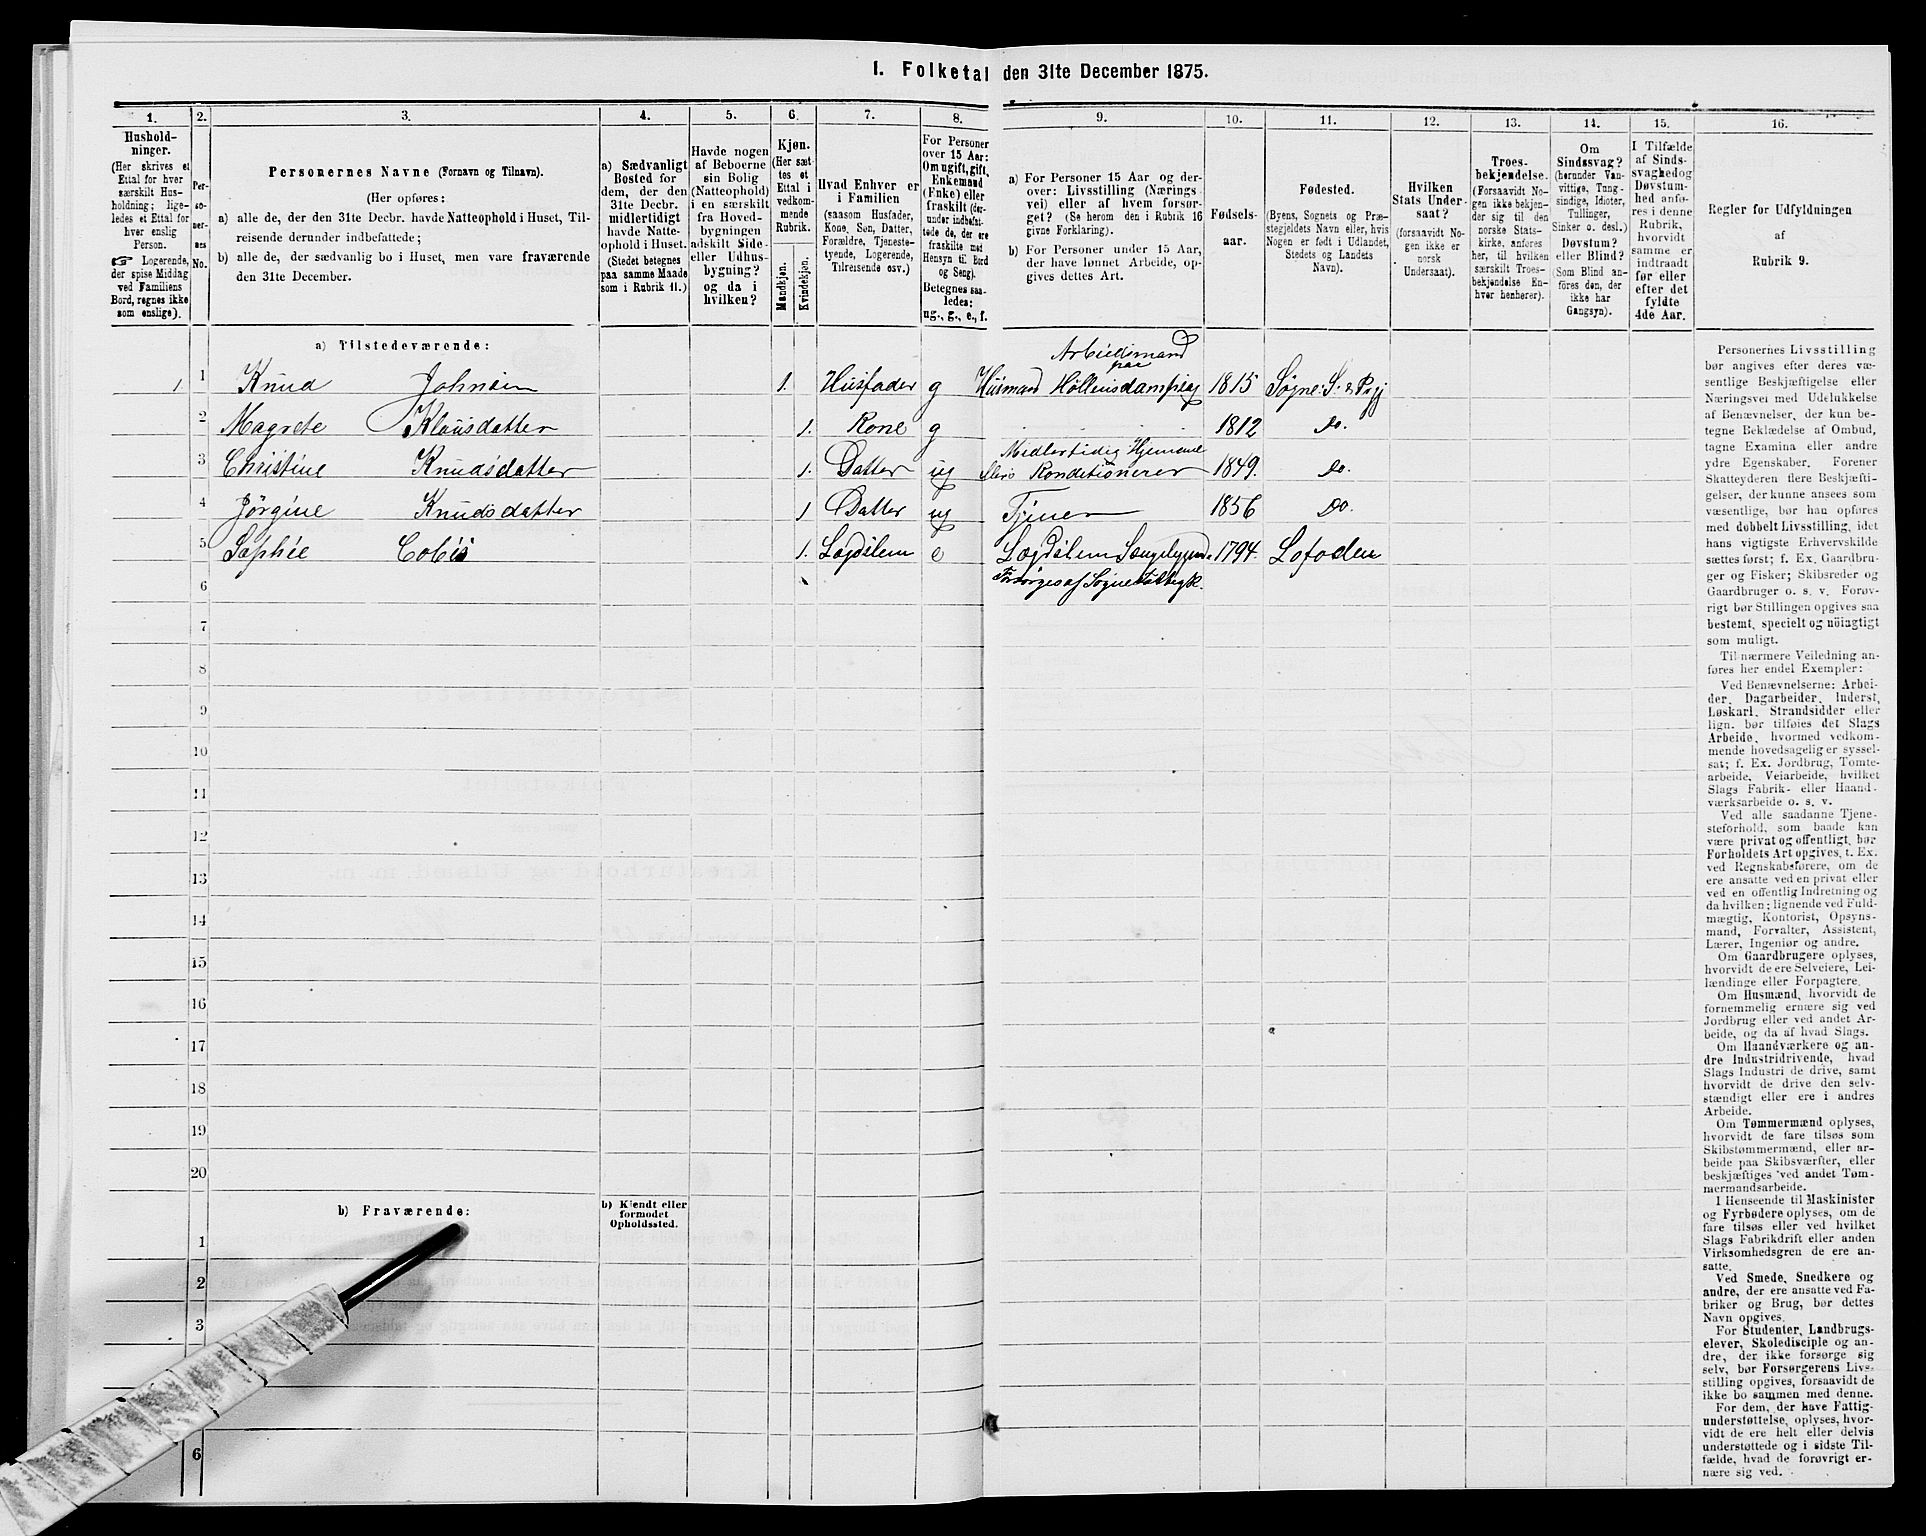 1. Folketal den 31te December 1875.
1.
Hushold-
ninger.
(Her skrives et
Ettal for hver
særskilt Hus-
holdning; lige-
ledes et Ettal for
hver enslig
Person.
☞ Logerende,
der spise Middag
ved Familiens
Bord, regnes ikke
som enslige).
2.
Per-
so-
ner-
nes
No.
3.
Personernes Navne (Fornavn og Tilnavn).
(Her opføres:
a) alle de, der den 31te Decbr. havde Natteophold i Huset, Til-
reisende derunder indbefattede;
b) alle de, der sædvanlig bo i Huset, men vare fraværende
den 31te December.
4.
a) Sædvanligt
Bosted for
dem, der den
31te Decbr.
midlertidigt
havde Natte-
ophold i Huset.
(Stedet betegnes
paa samme Maade
som i Rubrik 11.)
5.
Havde nogen
af Beboerne
sin Bolig
(Natteophold)
i en særskilt
fra Hoved-
bygningen
adskilt Side-
eller Udhus-
bygning?
og da i
hvilken?
6.
Kjøn.
(Her sæt-
tes et
Ettal i
vedkom-
mende
Rubrik.
Mandkjøn.
Kvindekjøn.
7.
Hvad Enhver er
i Familien
(saasom Husfader,
Kone, Søn, Datter,
Forældre, Tjeneste-
tyende, Logerende,
Tilreisende osv.)
8.
For Personer
over 15 Aar:
Om ugift, gift,
Enkemand
(Enke) eller
fraskilt (der-
under indbefat-
tede de, der ere
fraskilte med
Hensyn til Bord
og Seng).
Betegnes saa-
ledes:
ug., g., e., f.
9.
a) For Personer 15 Aar og der-
over: Livsstilling (Nærings-
vei) eller af hvem forsør-
get? (Se herom den i Rubrik 16
givne Forklaring).
b) For Personer under 15 Aar,
der have lønnet Arbeide, op-
gives dettes Art.
10.
Fødsels-
aar.
11.
Fødested.
(Byens, Sognets og Præ-
stegjeldets Navn eller, hvis
Nogen er født i Udlandet,
Stedets og Landets
Navn).
12.
Hvilken
Stats Under-
saat?
(forsaavidt No-
gen ikke er
norsk
Undersaat).
13.
Troes-
bekjendelse.
(Forsaavidt No-
gen ikke bekjen-
der sig til den
norske Stats-
kirke, anføres
her, til hvilken
særskilt Troes-
bekjendelse En-
hver henhører).
14.
Om
Sindssvag?
(herunder Van-
vittige, Tung-
sindige, Idioter,
Tullinger,
Sinker o. desl.)
Døvstum?
eller Blind?
(Som Blind an-
føres den, der
ikke har
Gangsyn).
15.
I Tilfælde
af Sinds-
svaghed og
Døvstum-
hed anfø-
res i denne
Rubrik,
hvorvidt
samme er
indtraadt
før eller
efter det
fyldte
4de Aar.
16.
Regler for Udfyldningen
af
Rubrik 9.
a) Tilstedeværende:
Arbeidsmand
paa
1 1 Knud Johnsen 1. Husfader g Husmand Høllensdampsag 1815 Søgne: S: & Prgj
2 Magrete Klausdatter 1. Kone g 1812 Do.
Midlertidig Hjemme
3 Christine Knudsdatter 1. Datter ug Konditionerer 1849. Do.
4 Jørgine Knudsdatter 1 Datter ug Tjener 1856 Do.
5 Sophie 1. Lægdslem e Lægdslem 1794. Lofoden
Forsørges af Søgne
6
7
8
9
10
11
12
13
14
15
16
17
18
19
20
b) Fraværende:
b) Kjendt eller
formodet
Opholdssted.
1
2
3
6
Personernes Livsstilling
bør angives efter deres væ-
sentlige Beskjæftigelse eller
Næringsvei med Udelukkelse
af Benævnelser, der kun be-
tegne Beklædelse af Ombud,
tagne Examina eller andre
ydre Egenskaber. Forener
Skatteyderen flere Beskjæfti-
gelser, der kunne ansees som
væsentlige, bør han opføres
med dobbelt Livsstilling, idet
hans vigtigste Erhvervskilde
sættes først; f. Ex. Gaardbru-
ger og Fisker; Skibsreder og
Gaardbruger o. s. v. Forøv-
rigt bør Stillingen opgives saa
bestemt, specielt og nöiagtigt
som muligt.
Til nærmere Veiledning an-
føres her endel Exempler:
Ved Benævnelserne: Arbei-
der, Dagarbeider, Inderst,
Løskarl, Strandsidder eller
lign. bør tilføies det Slags
Arbeide, hvormed vedkom-
mende hovedsagelig er syssel-
sat; f. Ex. Jordbrug, Tomte-
arbeide, Veiarbeide, hvilket
Slags Fabrik- eller Haand-
værksarbeide o. s. v.
Ved alle saadanne Tjene-
steforhold, som baade kan
være privat og offentligt, bør
Forholdets Art opgives, t. Ex.
ved Regnskabsførere, om de
ere ansatte ved en privat eller
ved en offentlig Indretning og
da hvilken; lignende ved Fuld-
mægtig, Kontorist, Opsyns-
mand, Forvalter, Assistent,
Lærer, Ingeniør og andre.
Om Gaardbrugere oplyses,
hvorvidt de ere Selveiere, Lei-
lændinge eller Forpagtere.
Om Husmænd, hvorvidt de
fornemmelig ernære sig ved
Jordbrug eller ved andet Ar-
beide, og da af hvad Slags.
Om Haandværkere og an-
dre Industridrivende, hvad
Slags Industri de drive, samt
hvorvidt de drive den selv-
stændigt eller ere i andres
Arbeide.
Om Tømmermænd oplyses,
hvorvidt de fare tilsøs som
Skibstømmermænd, eller ar-
beide paa Skibsværfter, eller
beskjæftiges ved andet Tøm-
mermandsarbeide.
I Henseende til Maskinister
og Fyrbødere oplyses, om de
fare tilsøs eller ved hvilket
Slags Fabrikdrift eller anden
Virksomhedsgren de ere an-
satte.
Ved Smede, Snedkere og
andre, der ere ansatte ved Fa-
briker og Brug, bør dettes
Navn opgives.
For Studenter, Landbrugs-
elever, Skoledisciple og an-
dre, der ikke forsørge sig
selv, bør Forsørgerens Livs-
stilling opgives, forsaavidt de
ikke bo sammen med denne.
For dem, der have Fattig-
understøttelse, oplyses, hvor-
vidt de ere helt eller delvis
understøttede og i sidste Til-
fælde, hvad de forøvrigt er-
nære sig ved.